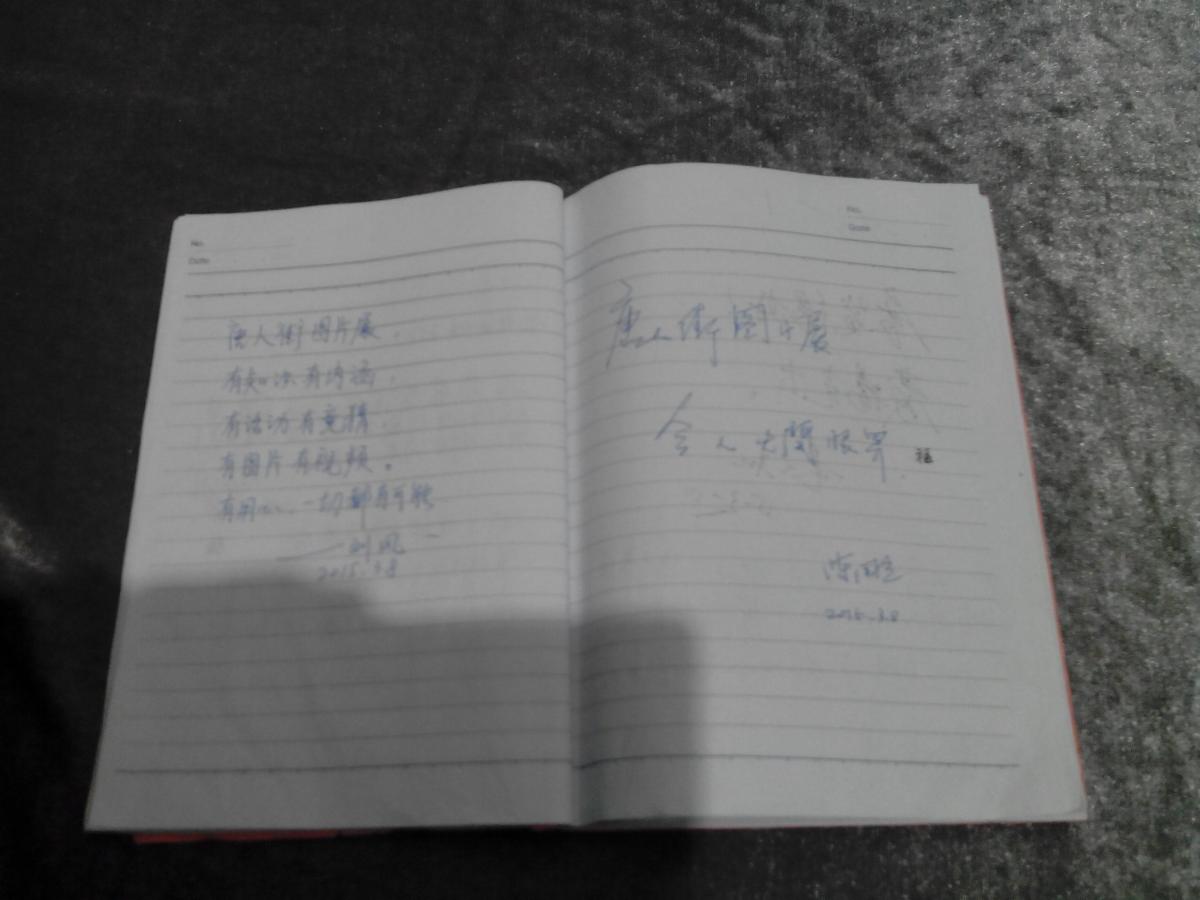 No.
Date
唐人街图片展，
有知识有内涵，
有活动有激情，
有图片有视频。
有用心，一切都有可能
2015.3.8
No.
Date
唐人街图片展
令人大开眼界
福
2015.3.8